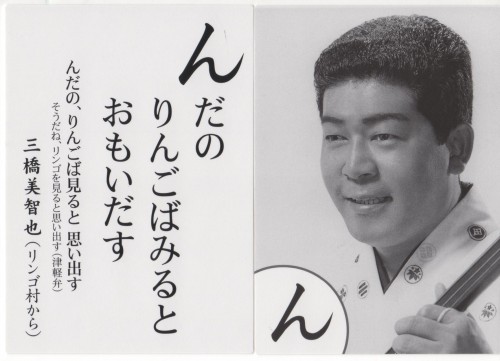 んだの
りんごばみると
おもいだす
んだの、りんごば見ると 思い出す
そうだね、リンゴを見ると思い出す(津軽弁)
三橋美智也(リンゴ村から)
ん